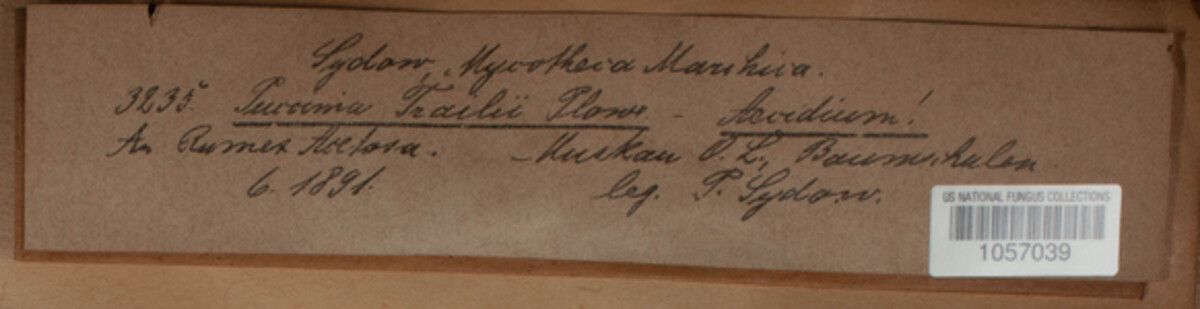 Sydow, Mycotheca Marchica.
3235. Puccinia Trailii Plowr - Aecidium!
An Rumex Acetosa. Muskau O. L., Baumschulen
6. 1891. leg. P. Sydow.
US NATIONAL FUNGUS COLLECTIONS
1057039